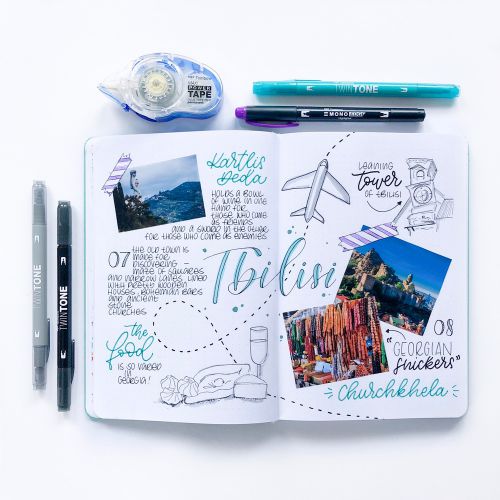 Kartlis
Deda
HOLDS A BOWL
OF WINE IN ONE
HAND FOR
THOSE WHO COME
AS FRIENDS
AND A SWORD IN THE OTHER
FOR THOSE WHO COME AS ENEMIES
07 THE OLD TOWN IS
MADE FOR
DISCOVERING –
MAZE OF SQUARES
AND NARROW LANES, LINED
WITH PRETTY WOODEN
HOUSES, BOHEMIAN BARS
AND ANCIENT
STONE
CHURCHES
the
food
IS SO VARIED
IN
GEORGIA!
Tbilisi
LEANING
tower
OF TBILISI
08
"GEORGIAN
snickers"
Churchkhela
POWER
TAPE
TWINTONE
MONO EDGE
TWINTONE
TWINTONE